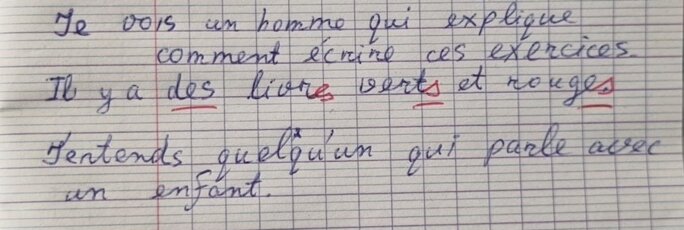 Je vois un homme qui explique
comment écrire ces exercices.
Il y a des livres verts et rouges
J'entends quelqu'un qui parle avec
un enfant.